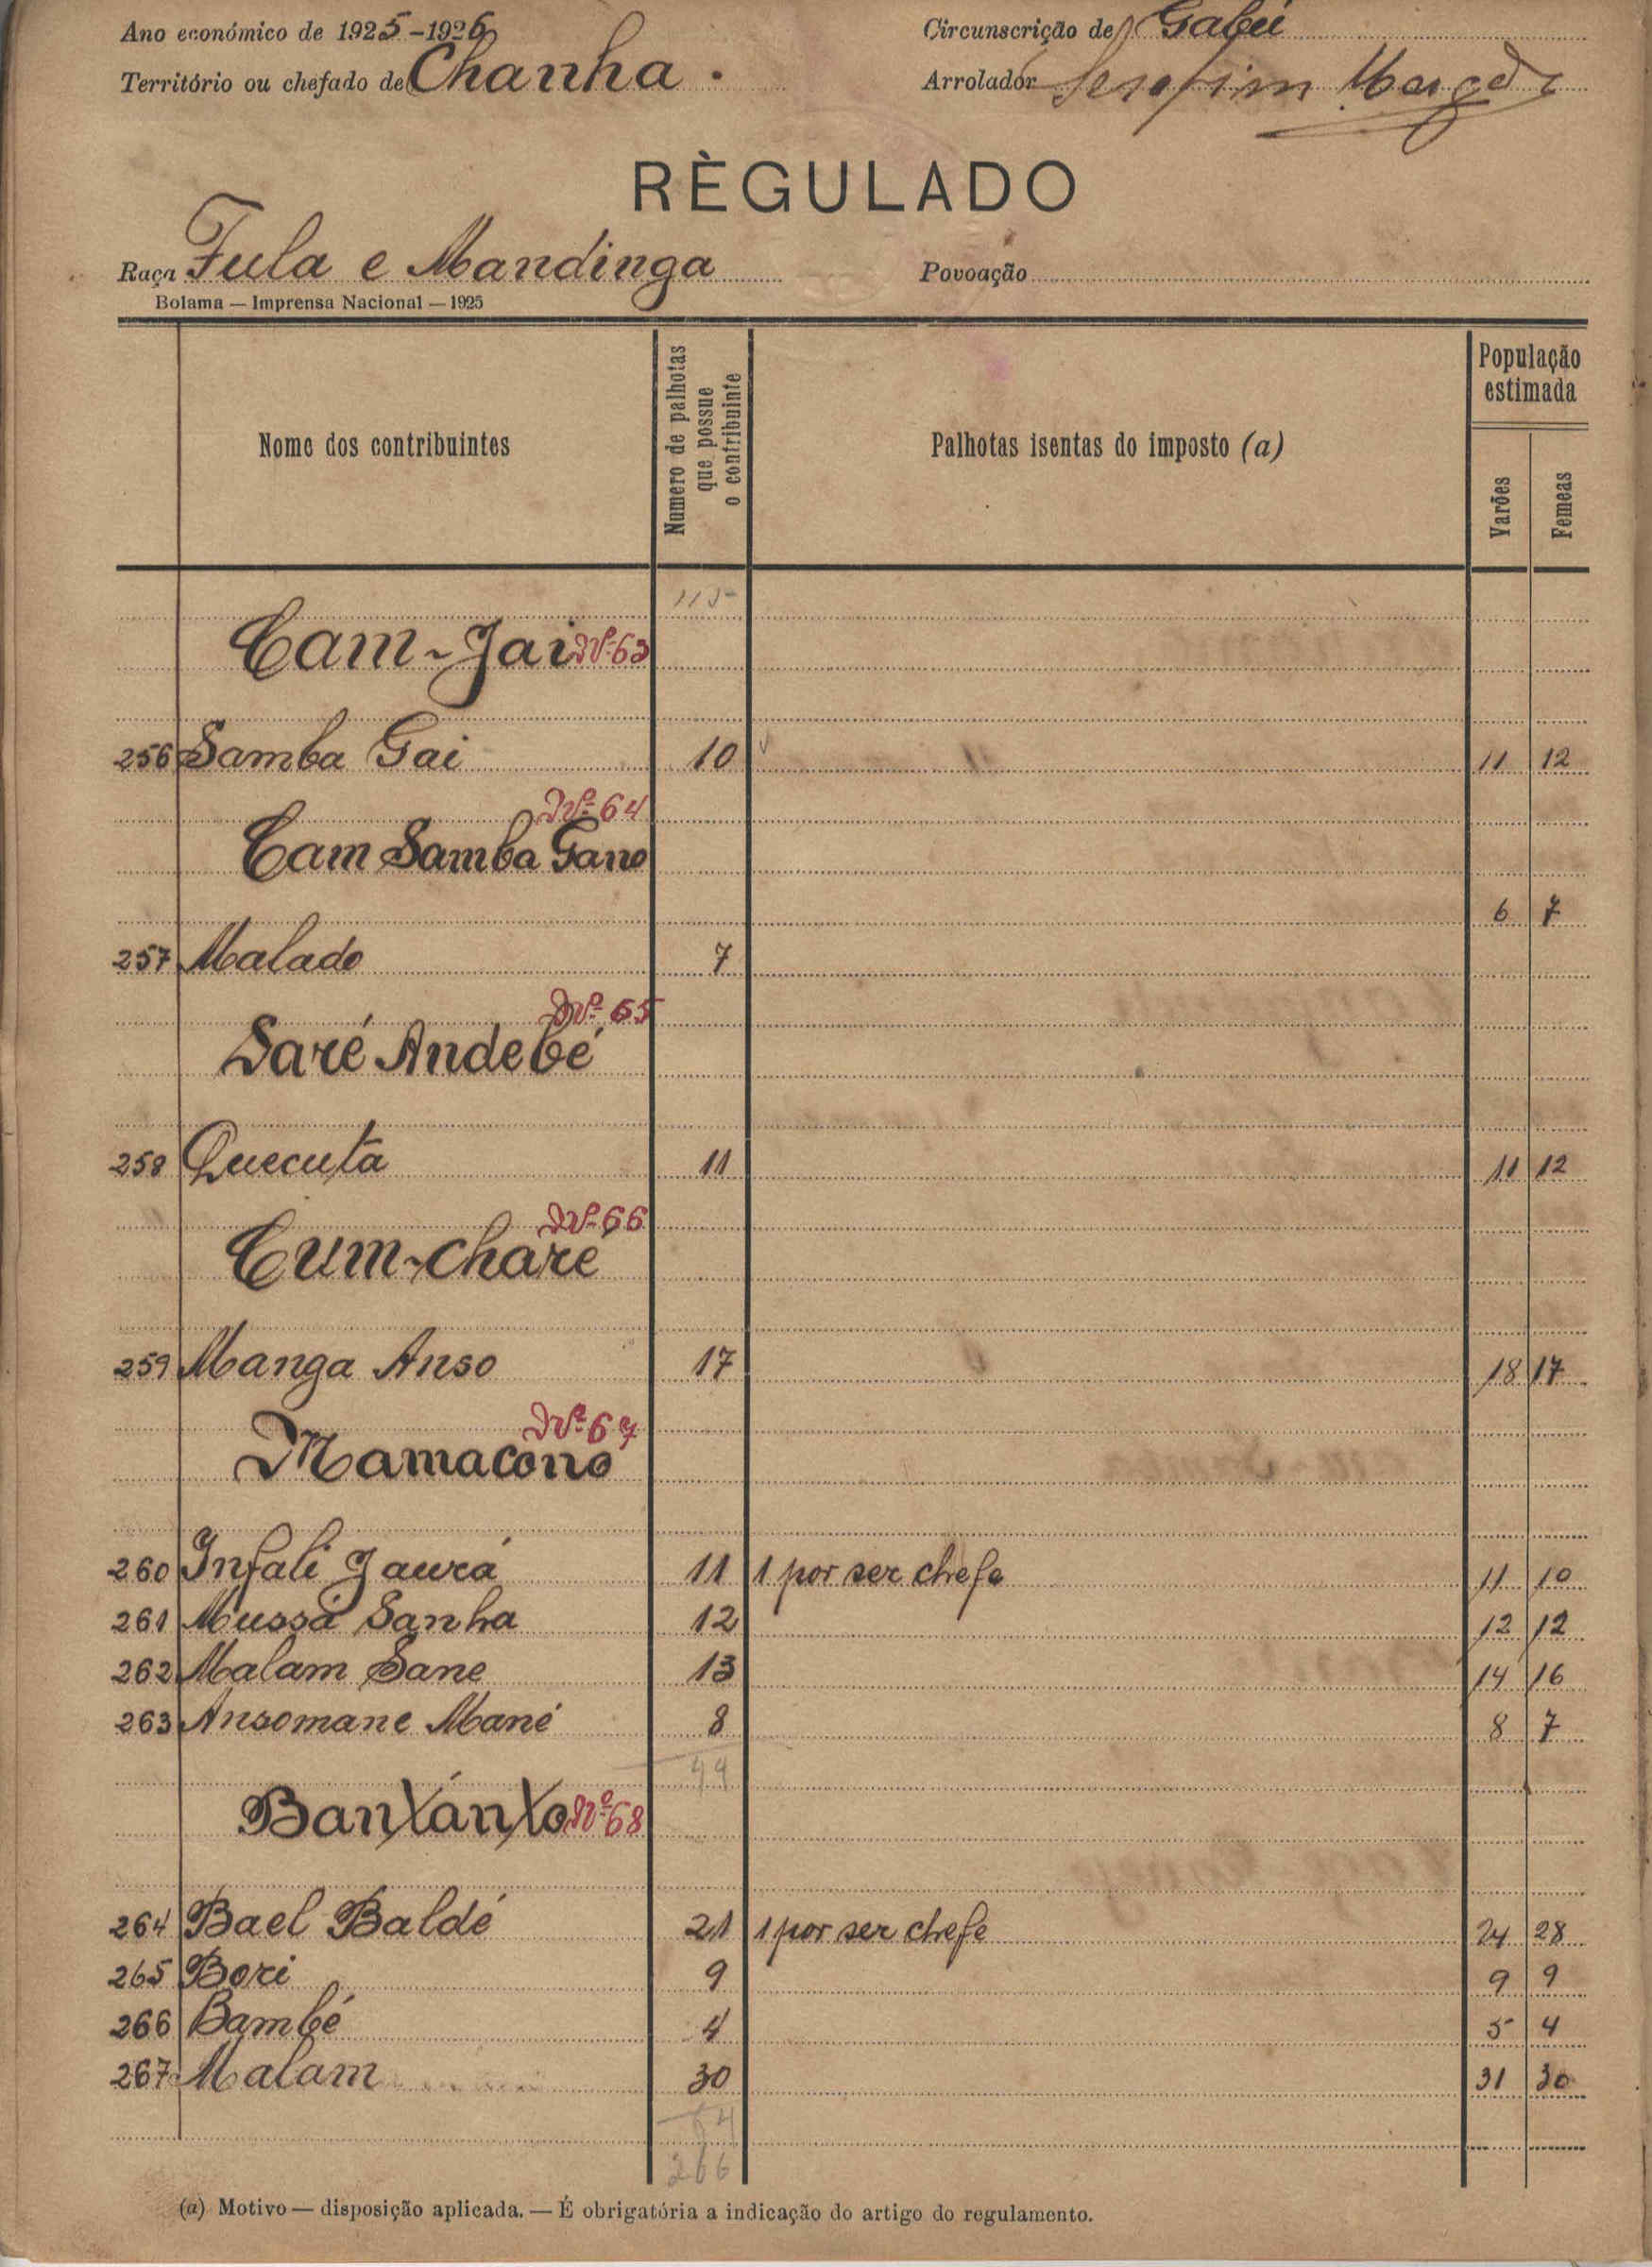 Ano económico de 1925-1926 Circunscrição de Gabú
Território ou chefado de Chanha. Arrolador Serafim
RÈGULADO
Raça Fula e Mandinga Povoação
Bolama — Imprensa Nacional — 1925
Nome dos contribuintes
Numero de palhotas que possue o contribuinte
Palhotas isentas do imposto (a)
População estimada
Varões
Femeas
115
Cam-Jai Nº 63
256 Samba Gai 10 11 12
Nº 64
Cam Samba Gano
6 7
257 Malado 7
Nº 65
Saré Andebé
258 Quecutá 11 11 12
Nº 66
Cum-charé
259 Manga Anso 17 18 17
Nº 67
Mamacono
260 Infali Jaurá 11 1 por ser chefe 11 10
261 Mussá Sanha 12 12 12
262 Malam Sane 13 14 16
263 Ansomane Mané 8 8 7
44
Banxánxo Nº 68
264 Bael Baldé 21 1 por ser chefe 24 28
265 Bori 9 9 9
266 Bambé 4 5 4
267 Malam 30 31 30
64
266
(a) Motivo — disposição aplicada. — É obrigatória a indicação do artigo do regulamento.